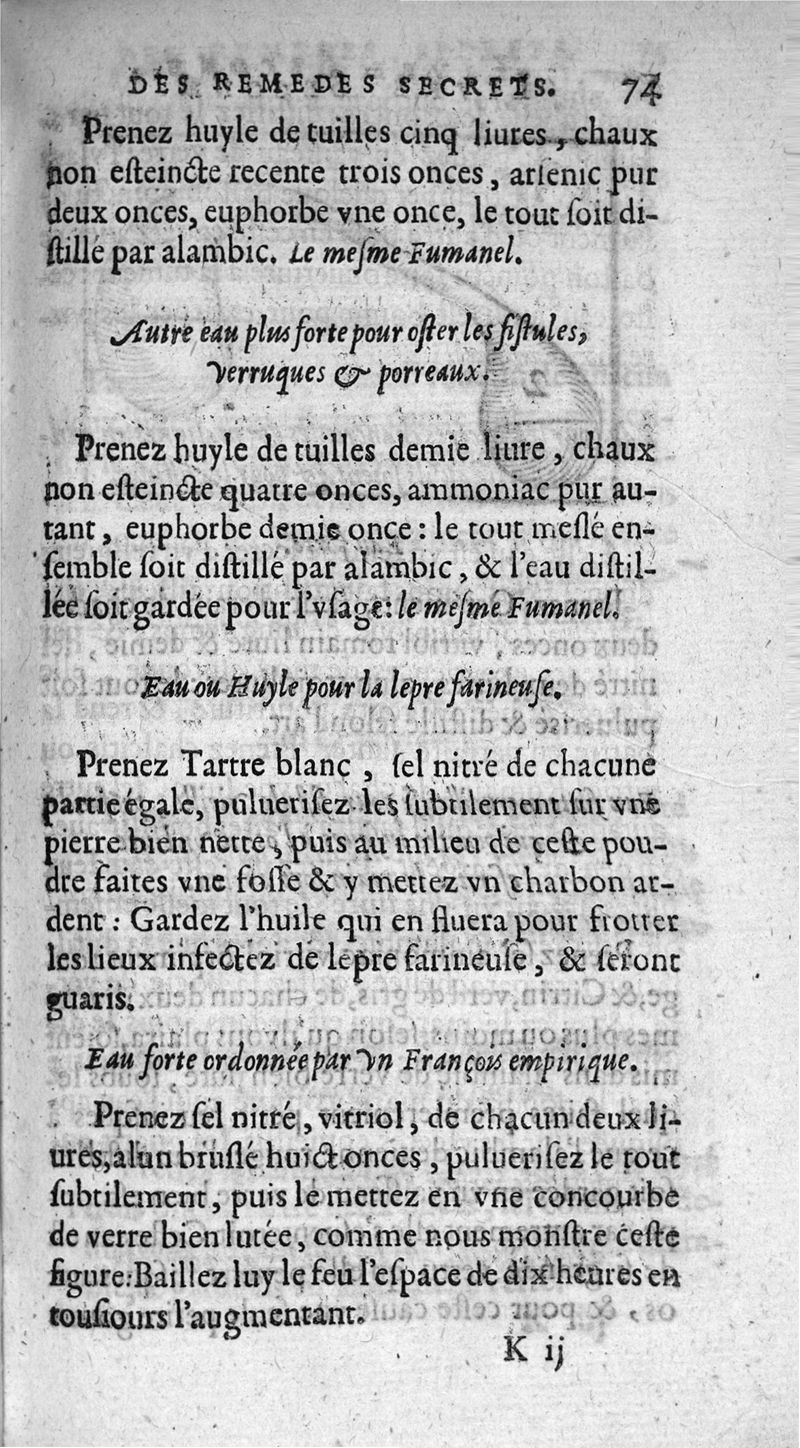 DES REMEDES SECRETS. 74
Prenez huyle de tuilles cinq liures, chaux
non eſteincte recente trois onces, arſenic pur
deux onces, euphorbe vne once, le tout ſoit di-
ſtillé par alambic. Le meſme Fumanel.
Autre eau plus forte pour oſter les fiſtules,
verruques & porreaux.
Prenez huyle de tuilles demie liure, chaux
non eſteincte quatre onces, ammoniac pur au-
tant, euphorbe demie once : le tout meſlé en-
ſemble ſoit diſtillé par alambic, & l'eau diſtil-
lée ſoit gardée pour l'vſage: le meſme Fumanel.
Eau ou Huyle pour la lepre farineuſe.
Prenez Tartre blanc, ſel nitré de chacune
partie égale, pulueriſez les ſubtilement ſur vne
pierre bien nette, puis au milieu de ceſte pou-
dre faites vne foſſe & y mettez vn charbon ar-
dent : Gardez l'huile qui en fluera pour frotter
les lieux infectez de lepre farineuſe, & ſeront
guaris.
Eau forte ordonnée par vn François empirique.
Prenez ſel nitré, vitriol, de chacun deux li-
ures, alun bruſlé huict onces, pulueriſez le tout
ſubtilement, puis le mettez en vne concourbe
de verre bien lutée, comme nous monſtre ceſte
figure: Baillez luy le feu l'eſpace de dix heures en
touſiours l'augmentant.
K ij